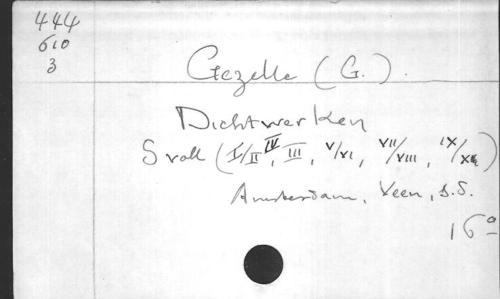 444
610
3
Gezelle (G.).
Dichtwerken
5 voll (I/II, IV, III, V/VI, VII/VIII, IX/XI)
Amsterdam, Veen, s.d.
16°